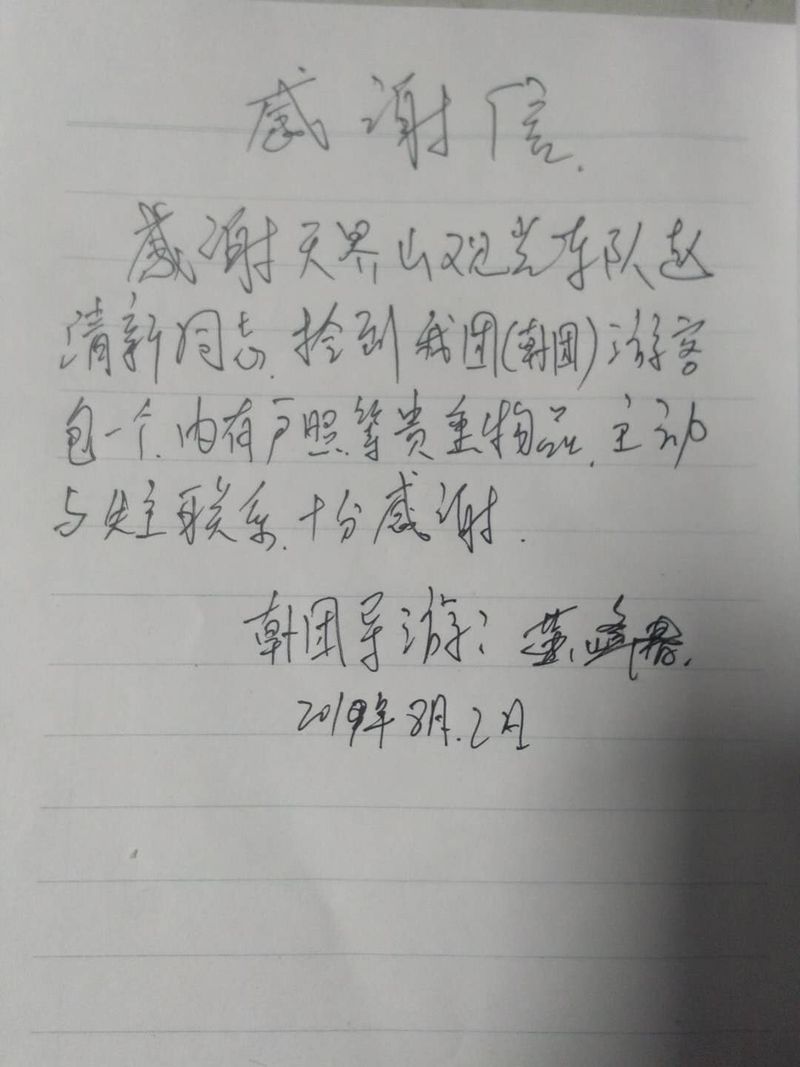 感谢信.
感谢天界山观光车队赵
清新同志.捡到我团(韩团)游客
包一个.内有户照.等贵重物品.主动
与失主联系.十分感谢.
韩团导游:董
2019年8月.2日